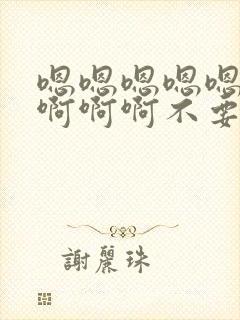 嗯嗯嗯嗯嗯
啊啊啊不要
謝麗珠